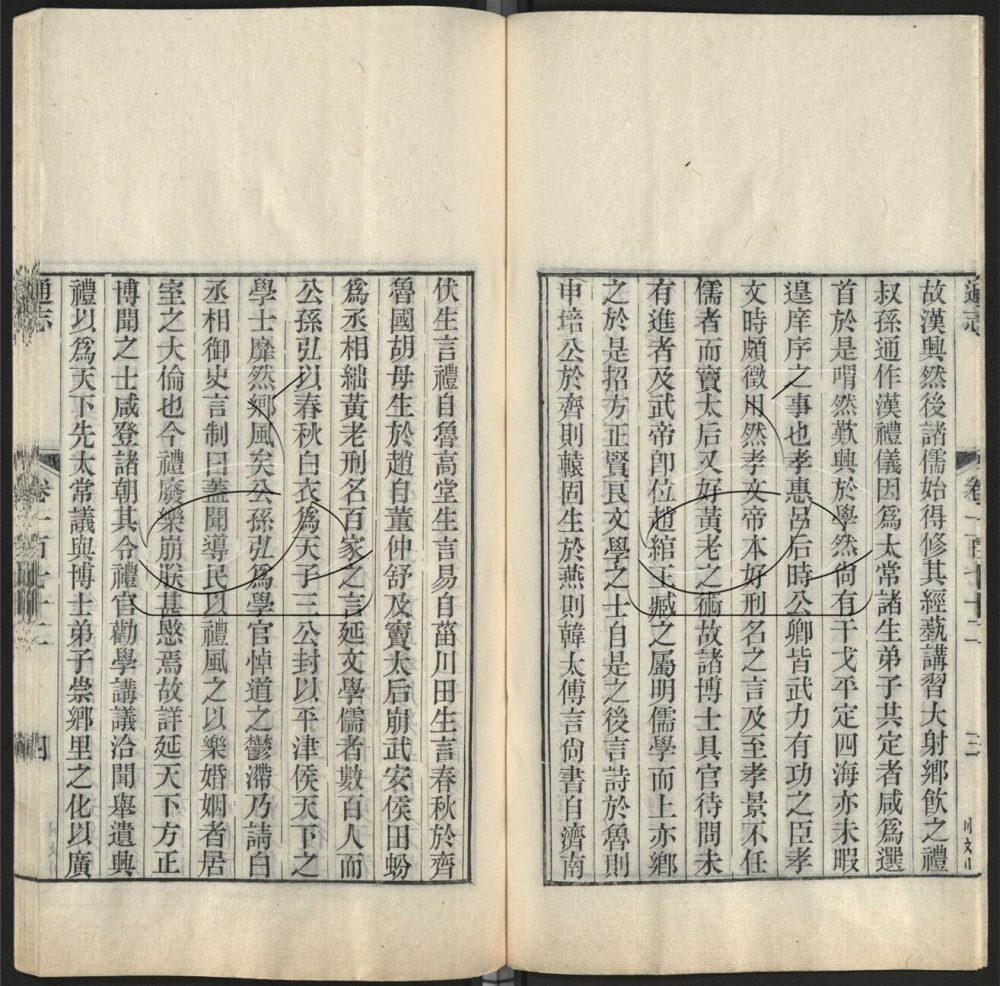 通志
卷一百七十二
三
故漢興然後諸儒始得修其經藝講習大射鄉飲之禮
叔孫通作漢禮儀因爲太常諸生弟子共定者咸爲選
首於是喟然歎興於學然尙有干戈平定四海亦未暇
遑庠序之事也孝惠呂后時公卿皆武力有功之臣孝
文時頗徵用然孝文帝本好刑名之言及至孝景不任
儒者而竇太后又好黃老之術故諸博士具官待問未
有進者及武帝卽位趙綰王臧之屬明儒學而上亦鄉
之於是招方正賢良文學之士自是之後言詩於魯則
申培公於齊則轅固生於燕則韓太傅言尙書自濟南
伏生言禮自魯高堂生言易自菑川田生言春秋於齊
魯國胡母生於趙自董仲舒及竇太后崩武安侯田蚡
爲丞相絀黃老刑名百家之言延文學儒者數百人而
公孫弘以春秋白衣爲天子三公封以平津侯天下之
學士靡然鄉風矣公孫弘爲學官悼道之鬱滯乃請白
丞相御史言制曰蓋聞導民以禮風之以樂婚姻者居
室之大倫也今禮廢樂崩朕甚愍焉故詳延天下方正
博聞之士咸登諸朝其令禮官勸學講議洽聞舉遺興
禮以爲天下先太常議與博士弟子崇鄉里之化以廣
通志
卷一百七十二
四